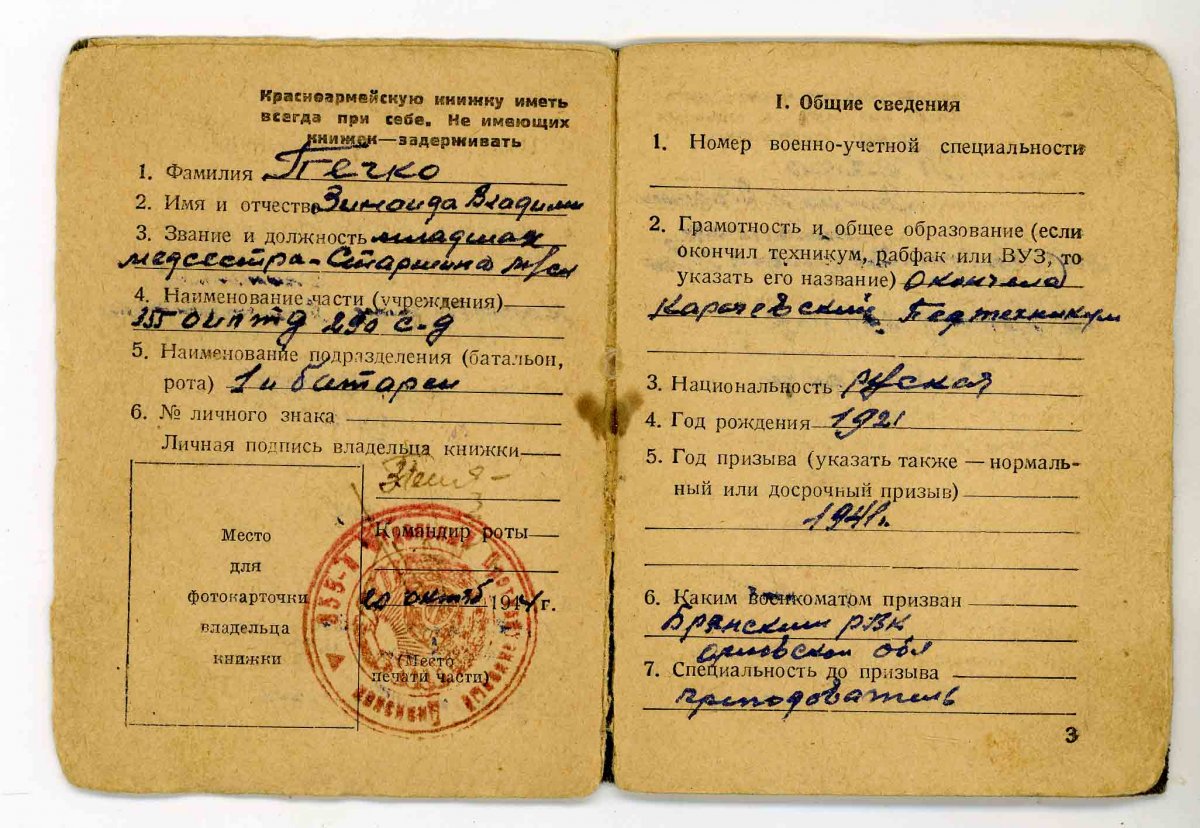 Красноармейскую книжку иметь
всегда при себе. Не имеющих
книжек—задерживать
1. Фамилия Печко
2. Имя и отчество Зинаида Владими
3. Звание и должность младшая
медсестра-Старшина м/сл
4. Наименование части (учреждения)
355 ОИПТД 290 с-д
5. Наименование подразделения (батальон,
рота) 1й батареи
6. № личного знака
Личная подпись владельца книжки
Место
для
фотокарточки
владельца
книжки
Командир роты
20 октяб 1944 г.
(Место
печати части)
I. Общие сведения
1. Номер военно-учетной специальности
2. Грамотность и общее образование (если
окончил техникум, рабфак или ВУЗ, то
указать его название) окончела
Карачевский Педтехникум
3. Национальность Руская
4. Год рождения 1921
5. Год призыва (указать также — нормаль-
ный или досрочный призыв)
1941г.
6. Каким военкоматом призван
Брянским РВК
Орловской обл
7. Специальность до призыва
преподователь
3